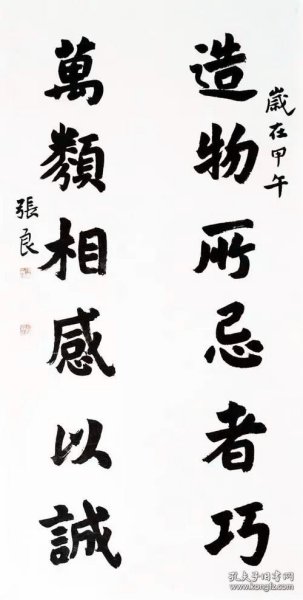 歲在甲午
造物所忌者巧
萬類相感以誠
張良
孔夫子旧书网